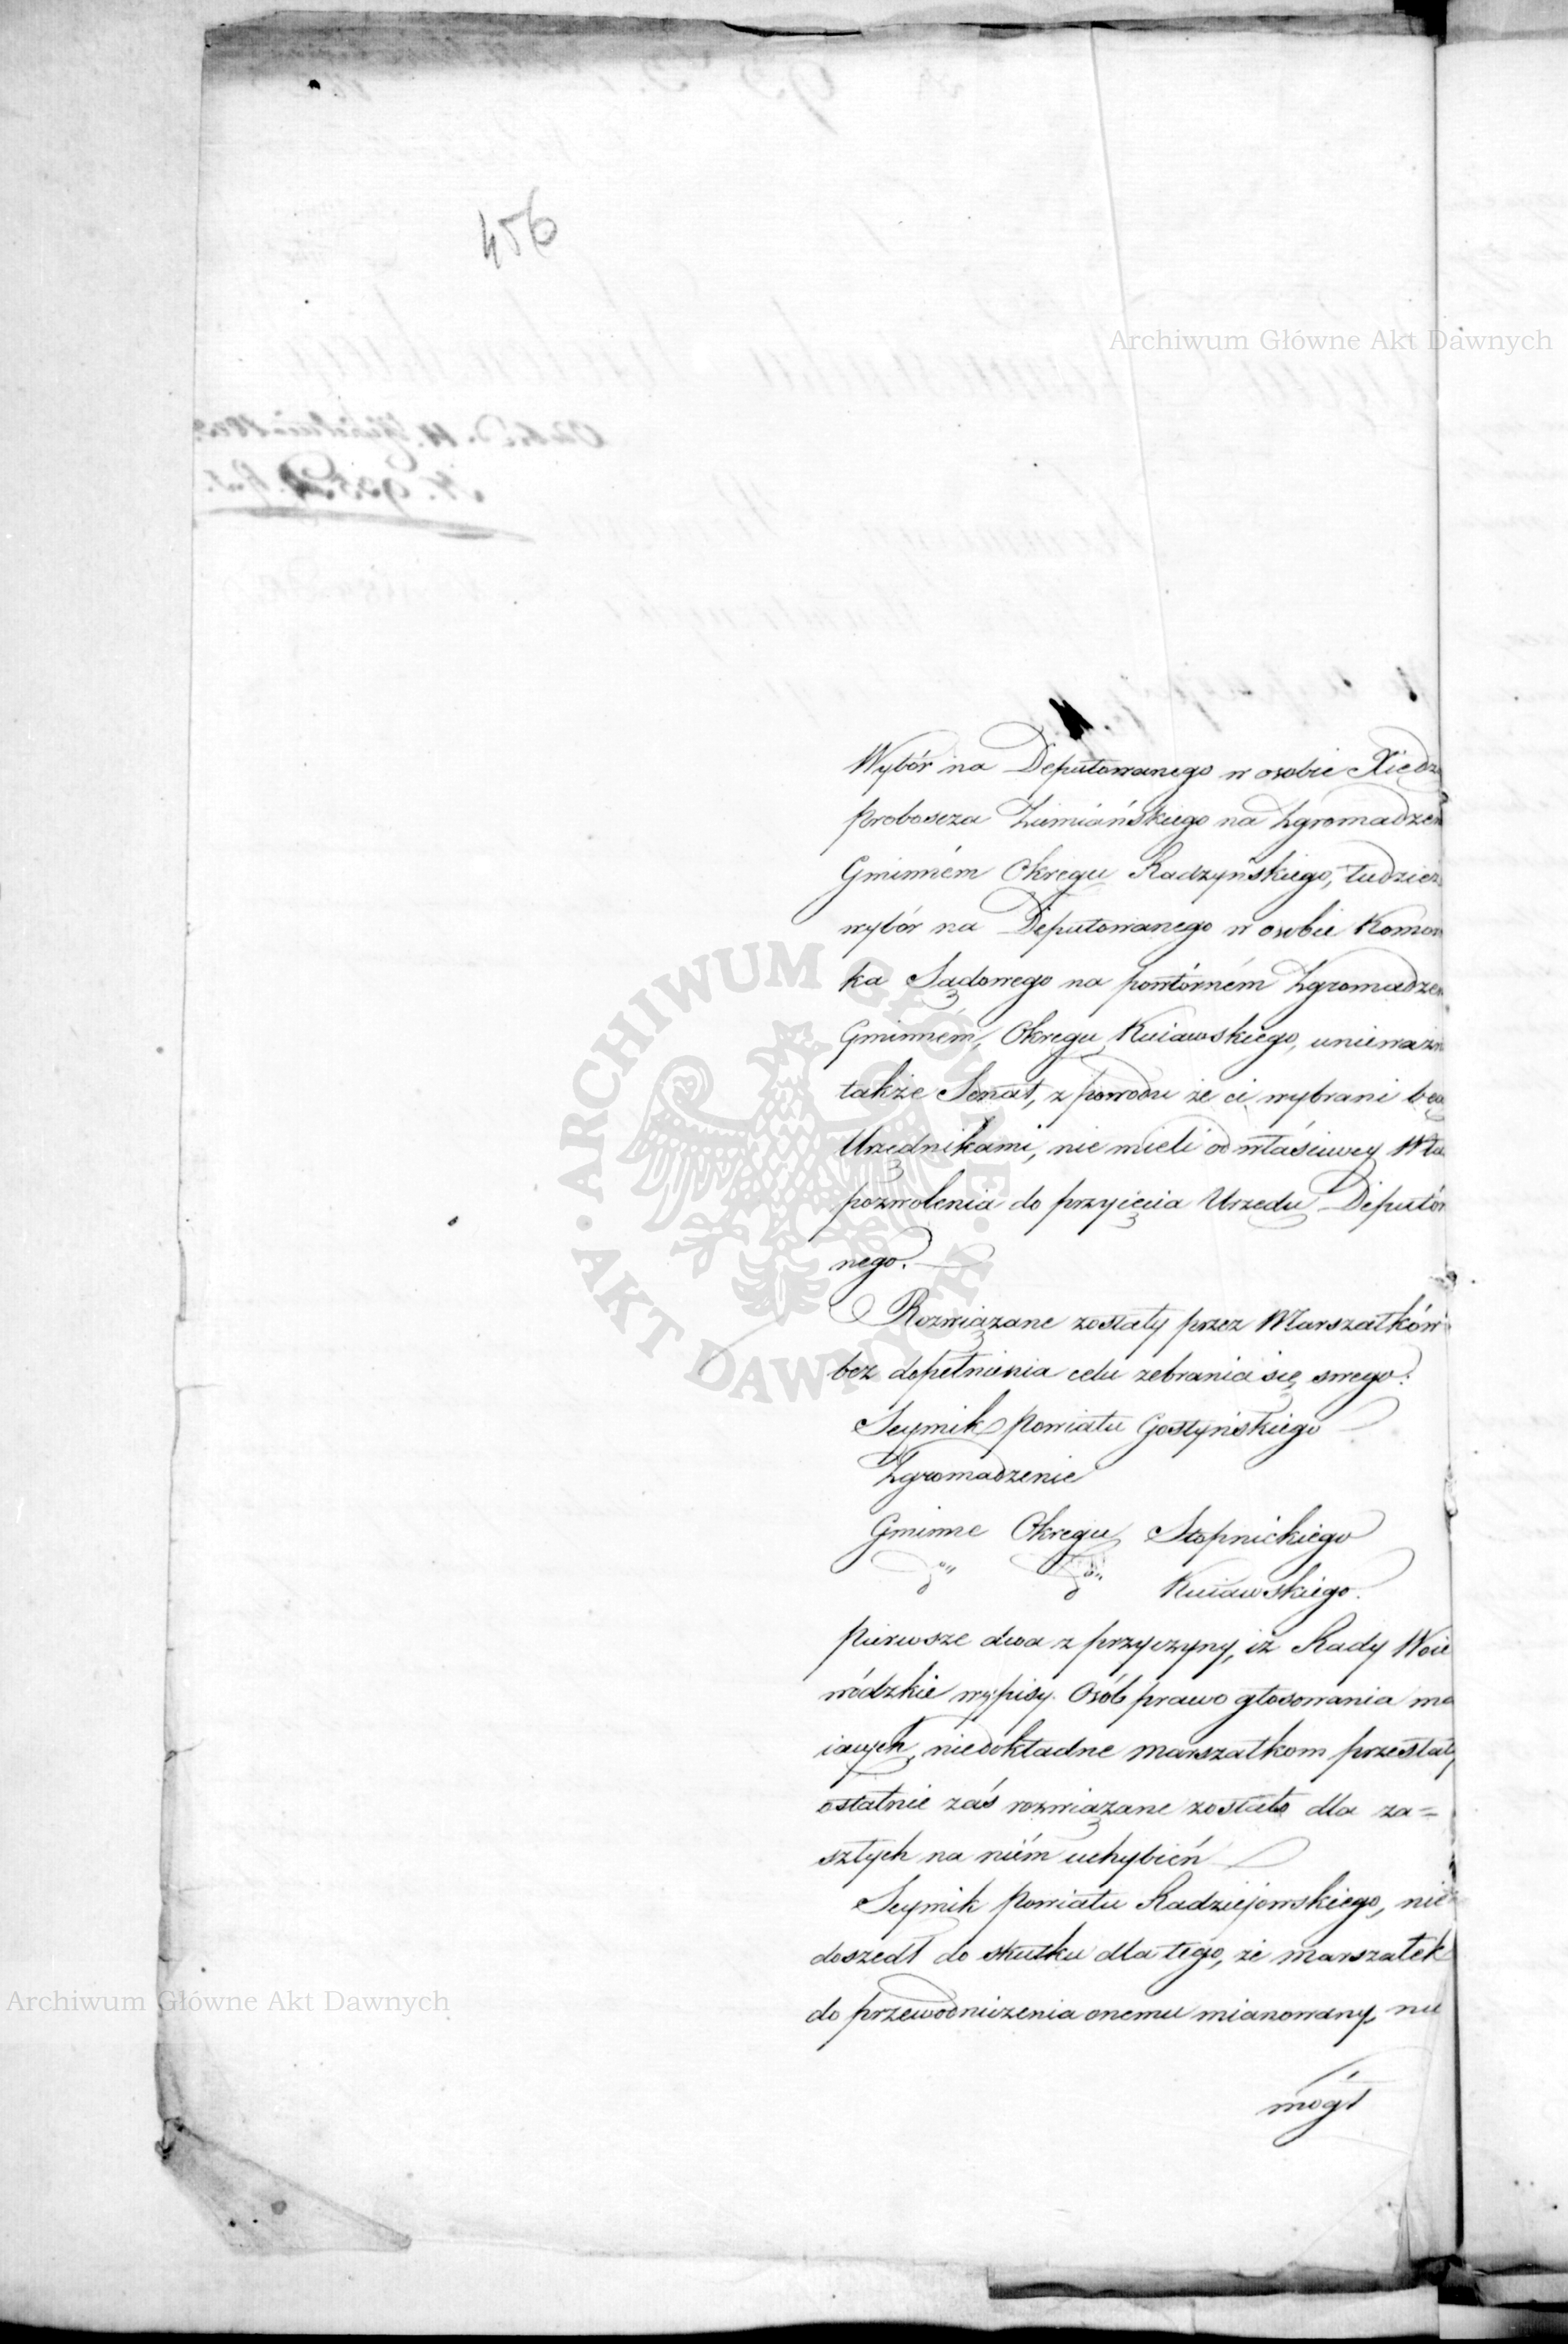 456
Archiwum Główne Akt Dawnych
Wybór na Deputowanego w osobie Xiędz
proboscza Ziemiańskiego na Zgromadzen
Gminném Okręgu Radzyńskiego, tudzież
wybór na Deputowanego w osobie Komor
ka Sądowego na powtórném Zgromadzen
Gminném, Okręgu Kuiawskiego, unieważn
także Senat, z powodu że ci wybrani będ
Urzędnikami, nie mieli od właściwey Wła
pozwolenia do przyięcia Urzędu Deputów
nego.
Rozwiązane zostały przez Marszałków
bez dopełnienia celu zebrania się swego:
Seymik Powiatu Gostyńskiego
Zgromadzenie
Gminne Okręgu Stopnickiego
do do Kuiawskiego.
pierwsze dwa z przyczyny, iż Rady Woie
wódzkie wypisy Osób prawo głosowania ma
iących, niedokładne marszałkom przesłały
ostatnie zaś rozwiązane zostało dla za=
szłych na niém uchybień
Seymik Powiatu Radziejowskiego, nie
doszedł do skutku dla tego, że marszałek
do przewodniczenia onemu mianowany, nie
mógł
ARCHIWUM GŁÓWNE · AKT DAWNYCH ·
Archiwum Główne Akt Dawnych